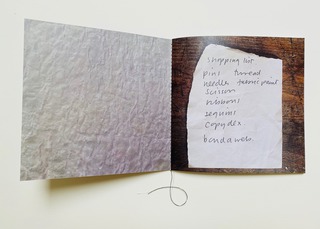 shopping list
pins thread
needles fabric paint
scissors
ribbons
sequins
copydex
bondaweb